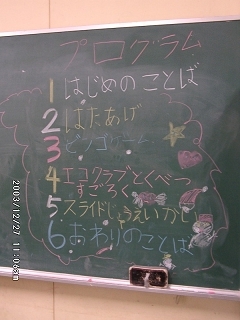 プログラム
1 はじめのことば
2 はたあげ
3 ビンゴゲーム
4 エコクラブとくべつ
すごろく
5 スライドじょうえいかい
6 おわりのことば
2003/12/27 11:06am